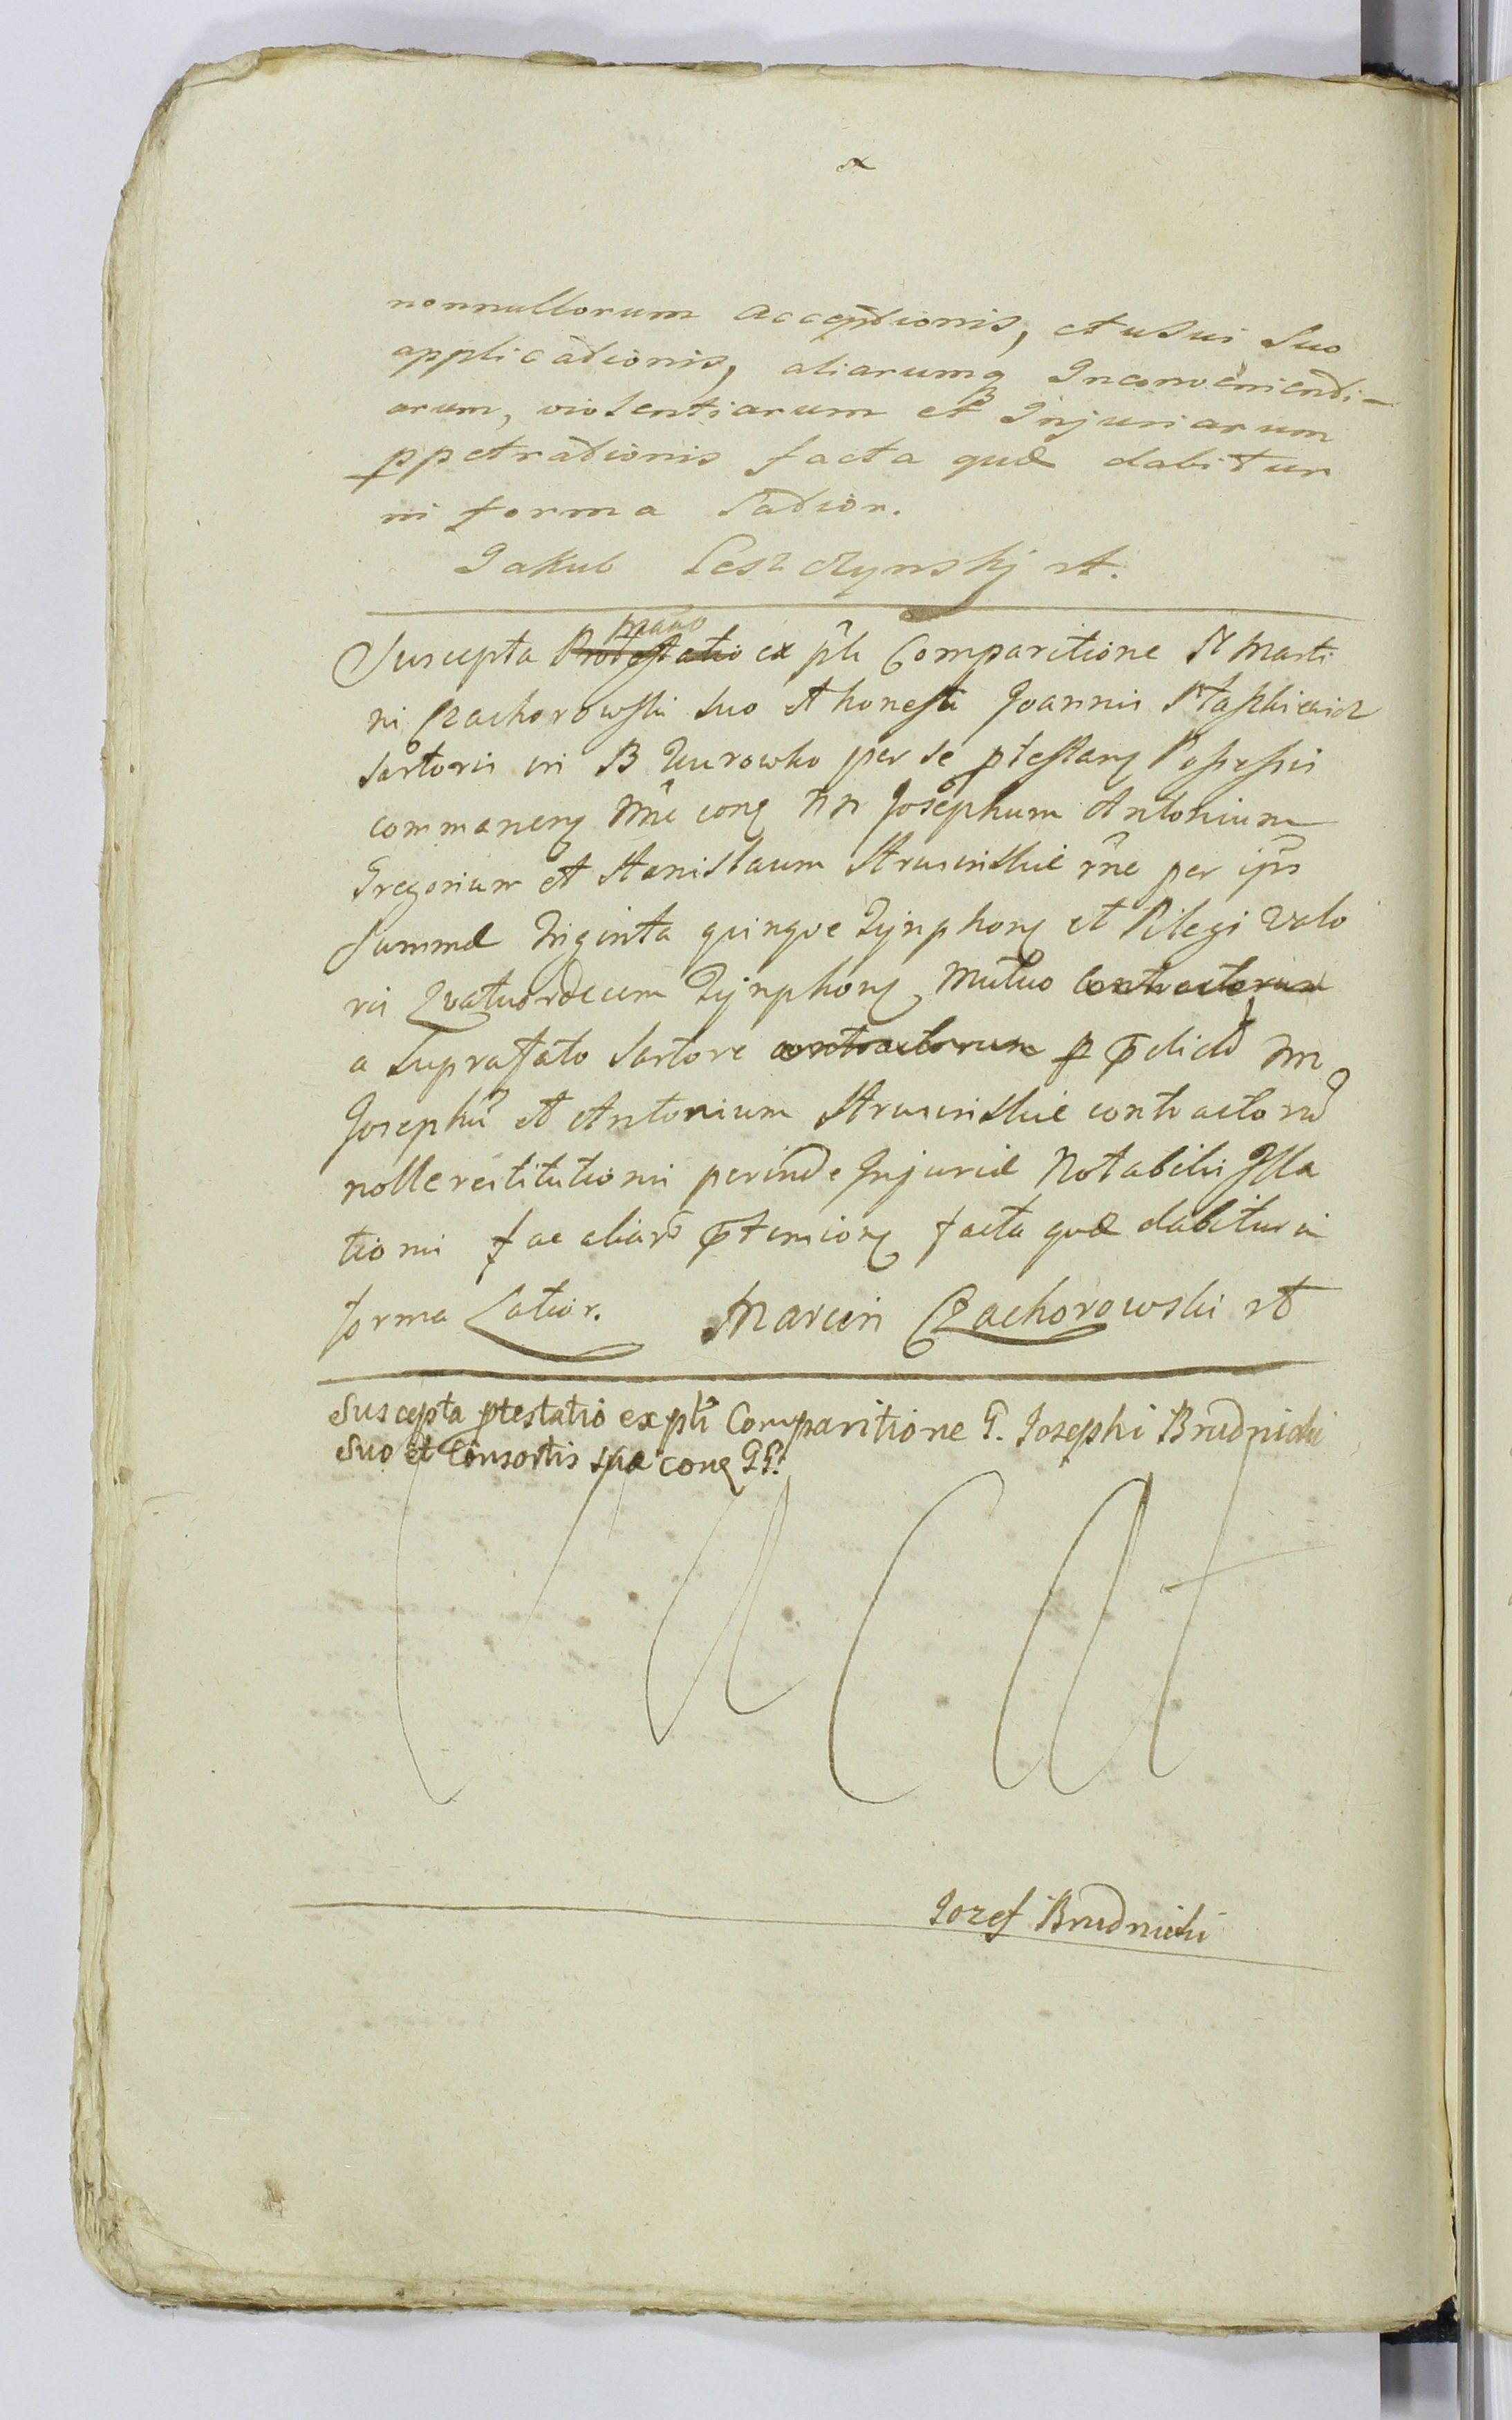 nonnullorum acceptionis, et usui suo
applicationis, aliarumq Inconvenienti-
arum, violentiarum et Injuriarum
ppetrationis facta quæ dabitur
in forma Latior.
Jakub Leszczynskj
mano
Suscepta Protestatio ex pti Comparitione N Marti
ni Czachorowski suo et honesti Joannis
Sartoris in B Zurowko per se ptestan
commanen cong NN Josephum Antonium
Gregorium et Stanislaum rne per ips
Summæ triginta quinqve Tynphon et valo
ris Qvatuordecim Tynphon mutuo contractorum
a Suprafato Sartore contractorum p
Josephū et Antonium contractorū
nolle restitutionis perinde Injuriæ Notabilis Illa
tionis ac aliarū facta quæ dabitur in
forma Latior. Marcin Czachorowski
Suscepta ptestatio ex pti Comparitione G. Josephi Brudnicki
suo et Consortis suæ cong GG.
Vacat
Jozef Brudnicki